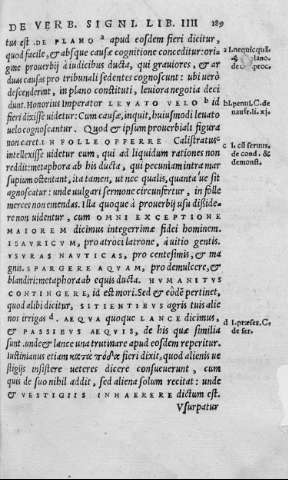 DE VERB. SIGNI. LIB. IIII 189
tus est. DE PLANO a apud eosdem fieri dicitur,
quod facile, & absque causæ cognitione conceditur: ori-
gine prouerbij à iudicibus ducta, qui grauiores, & ar
duas causas pro tribunali sedentes cognoscunt: ubi uerò
descenderint, in plano constituti, leuiora negotia deci
dunt. Honorius Imperator LEVATO VELO b id
fieri dixisse uidetur: Cum causæ, inquit, huiusmodi leuato
uelo cognoscantur. Quod & ipsum prouerbiali figura
non caret. IN FOLLE OFFERRE Callistratus c
intellexisse uidetur eum, qui ad liquidum rationes non
reddit: metaphora ab his ducta, qui pecuniam intra mar
supium ostendant, ita tamen, ut nec qualis, quanta ue sit
agnoscatur: unde uulgari sermone circunfertur, in folle
merces non emendas. Illa quoque à prouerbij usu diside-
re non uidentur, cum OMNI EXCEPTIONE
MAIOREM dicimus integerrimæ fidei hominem.
ISAVRICVM, pro atroci latrone, à uitio gentis.
VSVRAS NAVTICAS, pro centesimis, & ma
gnis. SPARGERE AQVAM, pro demulcere, &
blandiri: metaphora ab equis ducta. HVMANITVS
CONTINGERE, id est mori. Sed & eodè pertinet,
quod alibi dicitur, SITIENTIBVS agris tuis alie
nos irrigas d. AEQVA quoque LANCE dicimus,
& PASSIBVS AEQVIS, de his quæ similia
sunt. unde & lance una trutinare apud eosdem reperitur.
Iustinianus etiam κατὰ πόδας fieri dixit, quod alienis ue
stigijs insistere ueteres dicere consueuerunt, cum
quis de suo nihil addit, sed aliena solum recitat: unde
& VESTIGIIS INHAERERE dictum est.
Vsurpatur
b l. penul. C. de
naufr. li. xj.
de cond. &
demonst.
d l. præses. C.
de ser.